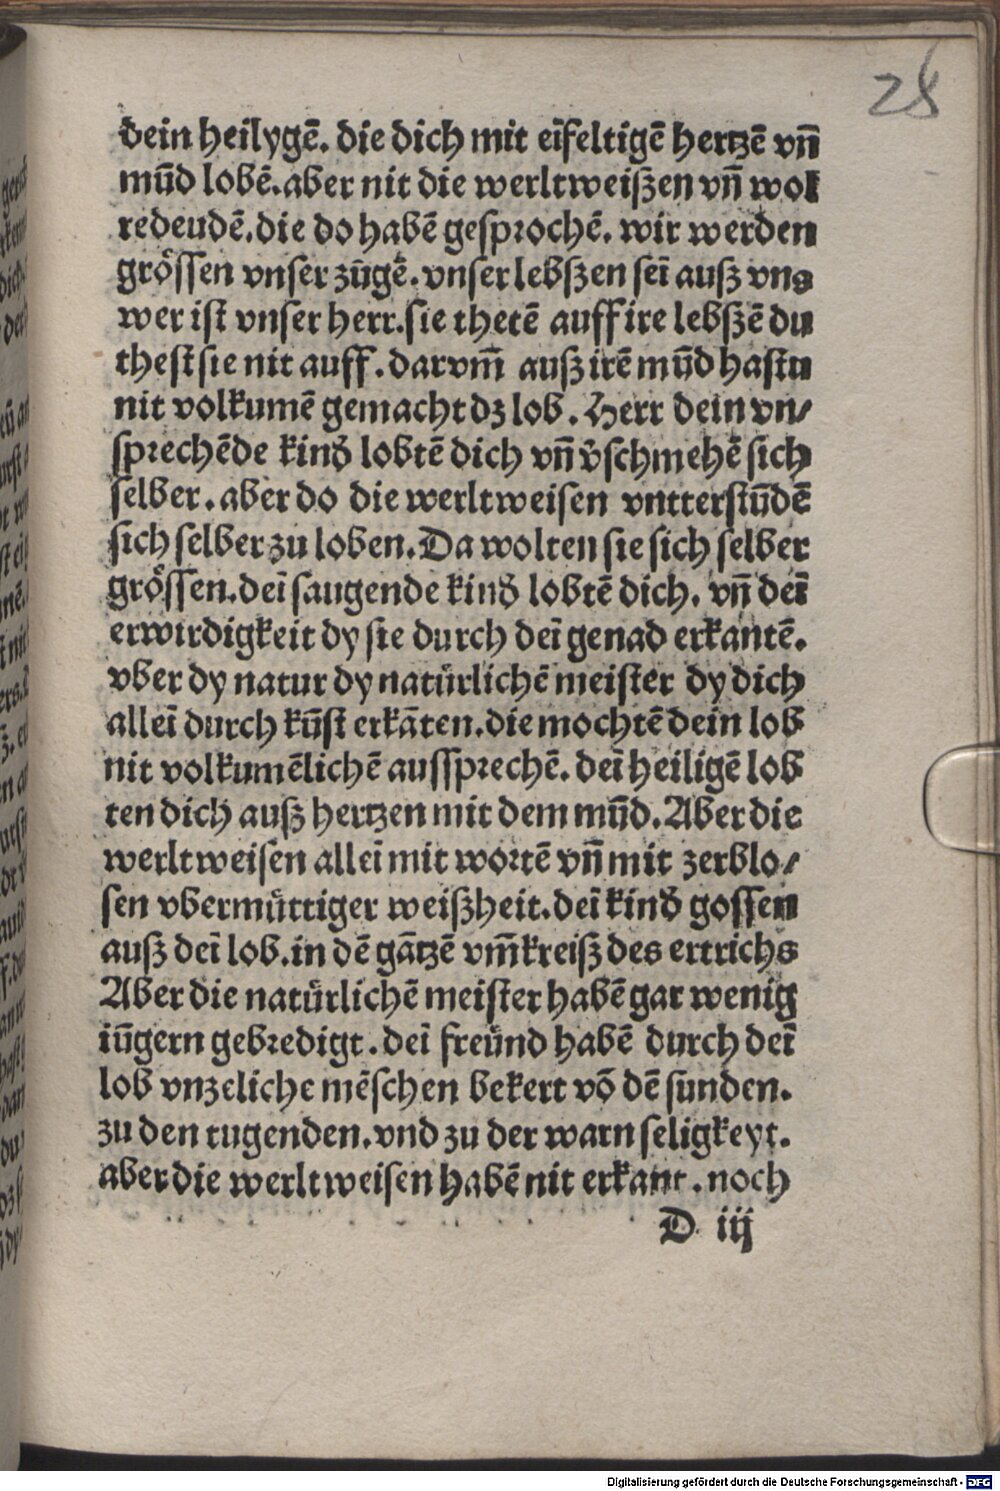 28
dein heilygē. die dich mit eīfeltigē hertzē vn̄
mūd lobē. aber nit die werltweißen vn̄ wol
redeudē. die do habē gesprochē. wir werden
grössen vnser zūgē. vnser lebßzen seī außz vns
wer ist vnser herr. sie thetē auff ire lebßzē du
thest sie nit auff. darvm̄ außz irē mūd hastu
nit volkumē gemacht dz lob. Herr dein vn/
sprechēde kind lobtē dich vn̄ v̾schmehē sich
selber. aber do die werltweisen vntterstūdē
sich selber zu loben. Da wolten sie sich selber
grössen. deī saugende kind lobtē dich. vn̄ deī
erwirdigkeit dy sie durch deī genad erkantē.
vber dy natur dy natürlichē meister dy dich
alleī durch kūst erkāten. die mochtē dein lob
nit volkumēlichē aussprechē. deī heiligē lob
ten dich außz hertzen mit dem mūd. Aber die
werltweisen alleī mit wortē vn̄ mit zerblo/
sen vbermüttiger weißzheit. deī kind gossen
außz deī lob. in dē gātzē vm̄kreißz des ertrichs
Aber die natürlichē meister habē gar wenig
iūgern gebredigt. deī freünd habē durch deī
lob vnzeliche mēschen bekert vō dē sunden.
zu den tugenden. vnd zu der warn seligkeyt.
aber die werltweisen habē nit erkant. noch
D iij
Digitalisierung gefördert durch die Deutsche Forschungsgemeinschaft - DFG